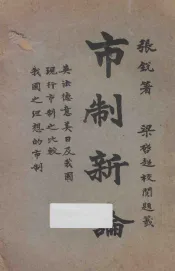 張銳箸 梁啓超校閱題
市制新論
英法德意美日及我國
現行市制之比較
我國之理想的市制